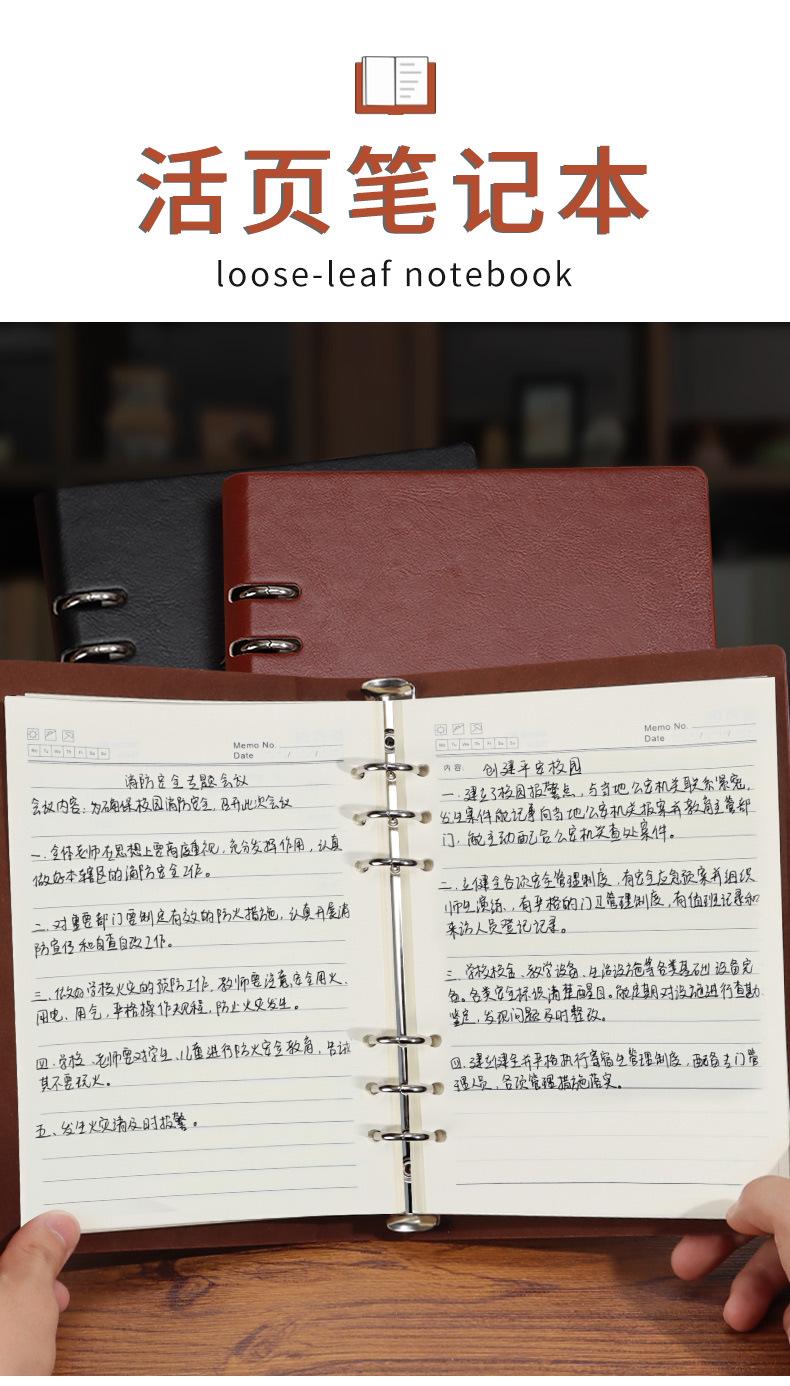 活页笔记本
loose-leaf notebook
Memo No.
Mo Tu We Th Fr Sa Su
Date / /
消防安全专题会议
会议内容:为确保校园消防安全,召开此次会议
一、全体老师在思想上要高度重视,充分发挥作用,认真
做好本辖区的消防安全工作。
二、对重要部门要制定有效的防火措施,认真开展消
防宣传和自查自改工作。
三、做好学校火灾的预防工作,教师要注意安全用火、
用电、用气,严格操作规程,防止火灾发生。
四、学校、老师要对学生、儿童进行防火安全教育,告诫
其不要玩火。
五、发生火灾请及时报警。
Memo No.
Mo Tu We Th Fr Sa Su
Date / /
内容: 创建平安校园
一、建立了校园报警点,与当地公安机关联系紧密,
发生案件能记事向当地公安机关报案并教育主管部
门,能主动配合公安机关查处案件。
二、立健全各项安全管理制度,有安全应急预案并组织
师生演练,有严格的门卫管理制度,有值班记录和
来访人员登记记录。
三、学校校舍、教学设备、生活设施等各类基础设备完
备。各类安全标识清楚醒目。能定期对设施进行查勘
鉴定,发现问题及时整改。
四、建立健全并严格执行寄宿生管理制度,配备专门管
理人员,各项管理措施落实。